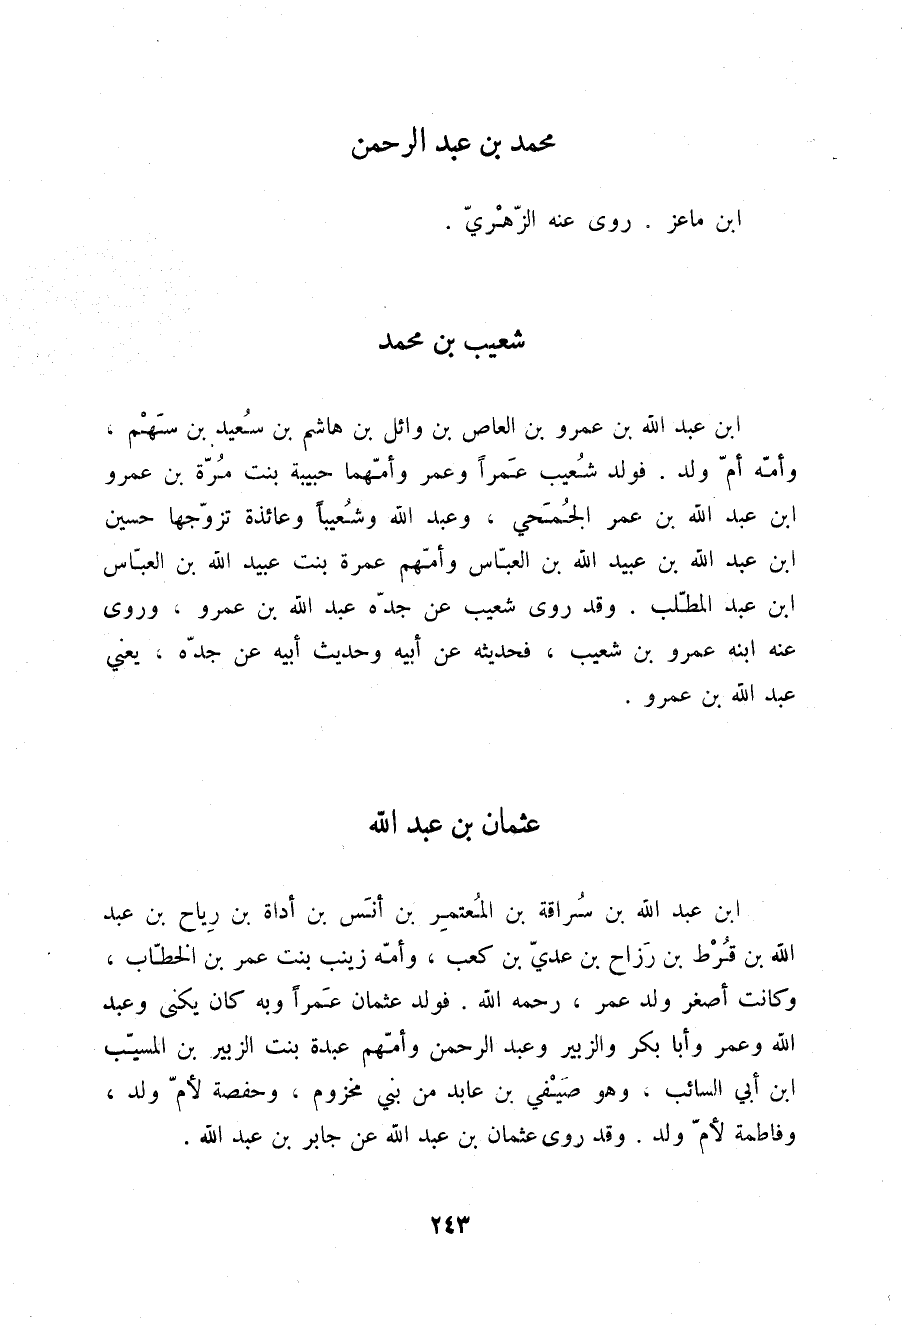 محمد بن عبد الرحمن
ابن ماعز . روى عنه الزّهْريّ .
شعيب بن محمد
ابن عبد الله بن عمرو بن العاص بن وائل بن هاشم بن سُعيد بن سَهْم ،
وأمّه أمّ ولد . فولد شُعيب عَمراً وعمر وأمّهما حبيبة بنت مُرّة بن عمرو
ابن عبد الله بن عمر الجُمَحي ، وعبد الله وشُعيباً وعائذة تزوّجها حسين
ابن عبد الله بن عبيد الله بن العبّاس وأمّهم عمرة بنت عبيد الله بن العبّاس
ابن عبد المطّلب . وقد روى شعيب عن جدّه عبد الله بن عمرو ، وروى
عنه ابنه عمرو بن شعيب ، فحديثه عن أبيه وحديث أبيه عن جدّه ، يعني
عبد الله بن عمرو .
عثمان بن عبد الله
ابن عبد الله بن سُراقة بن المُعتمِر بن أنَس بن أداة بن رِياح بن عبد
الله بن قُرْط بن رَزاح بن عديّ بن كعب ، وأمّه زينب بنت عمر بن الخطّاب ،
وكانت أصغر ولد عمر ، رحمه الله . فولد عثمان عَمراً وبه كان يكنى وعبد
الله وعمر وأبا بكر والزبير وعبد الرحمن وأمّهم عبدة بنت الزبير بن المسيّب
ابن أبي السائب ، وهو صَيْفي بن عابد من بني مخزوم ، وحفصة لأمّ ولد ،
وفاطمة لأمّ ولد . وقد روى عثمان بن عبد الله عن جابر بن عبد الله .
٢٤٣